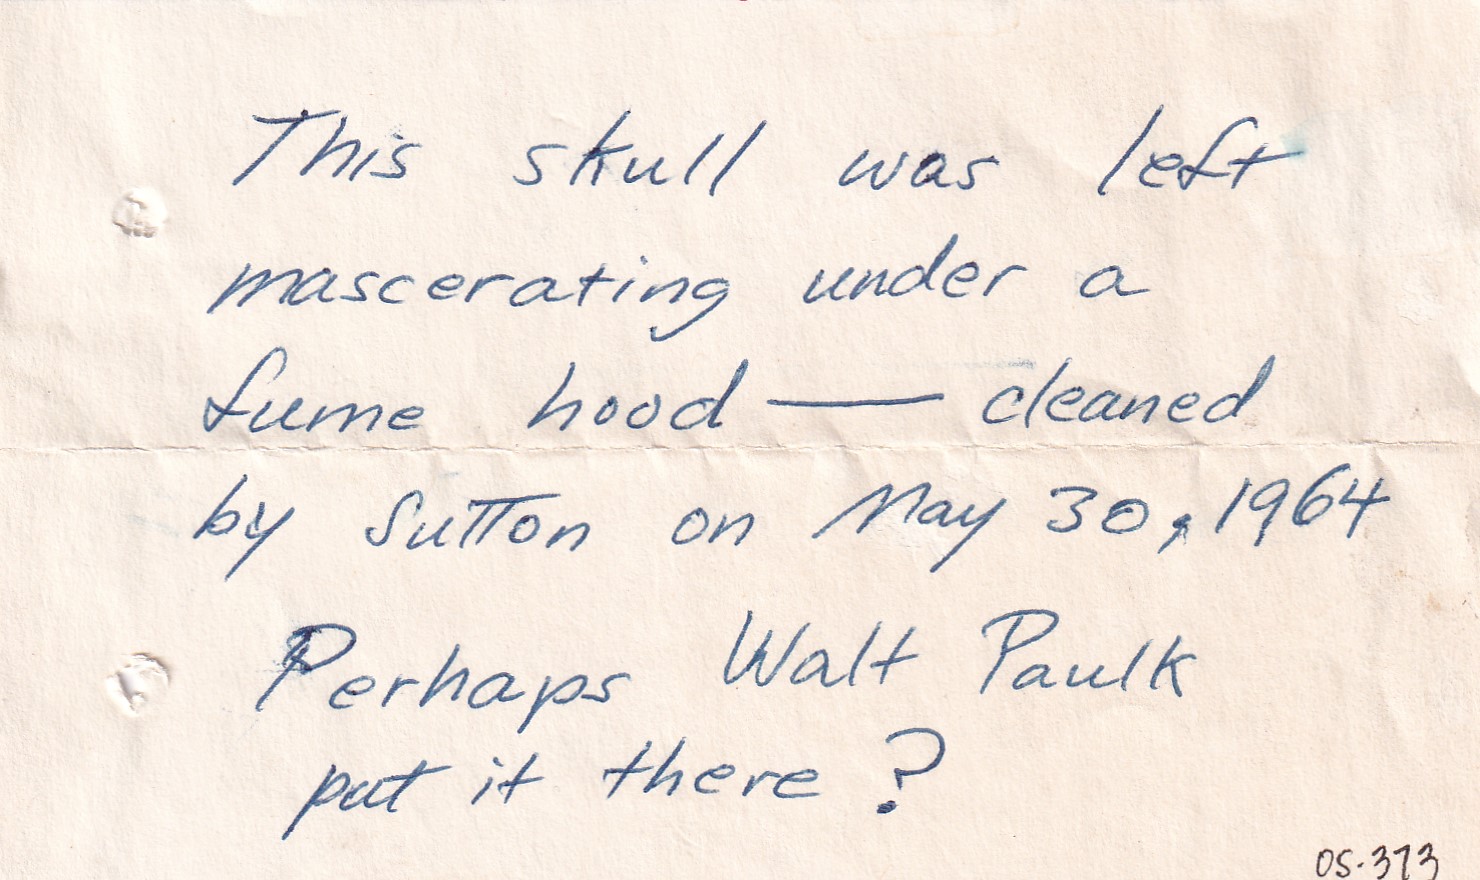 This skull was left
mascerating under a
fume hood — cleaned
by Sutton on May 30, 1964
Perhaps Walt Paulk
put it there?
OS-373